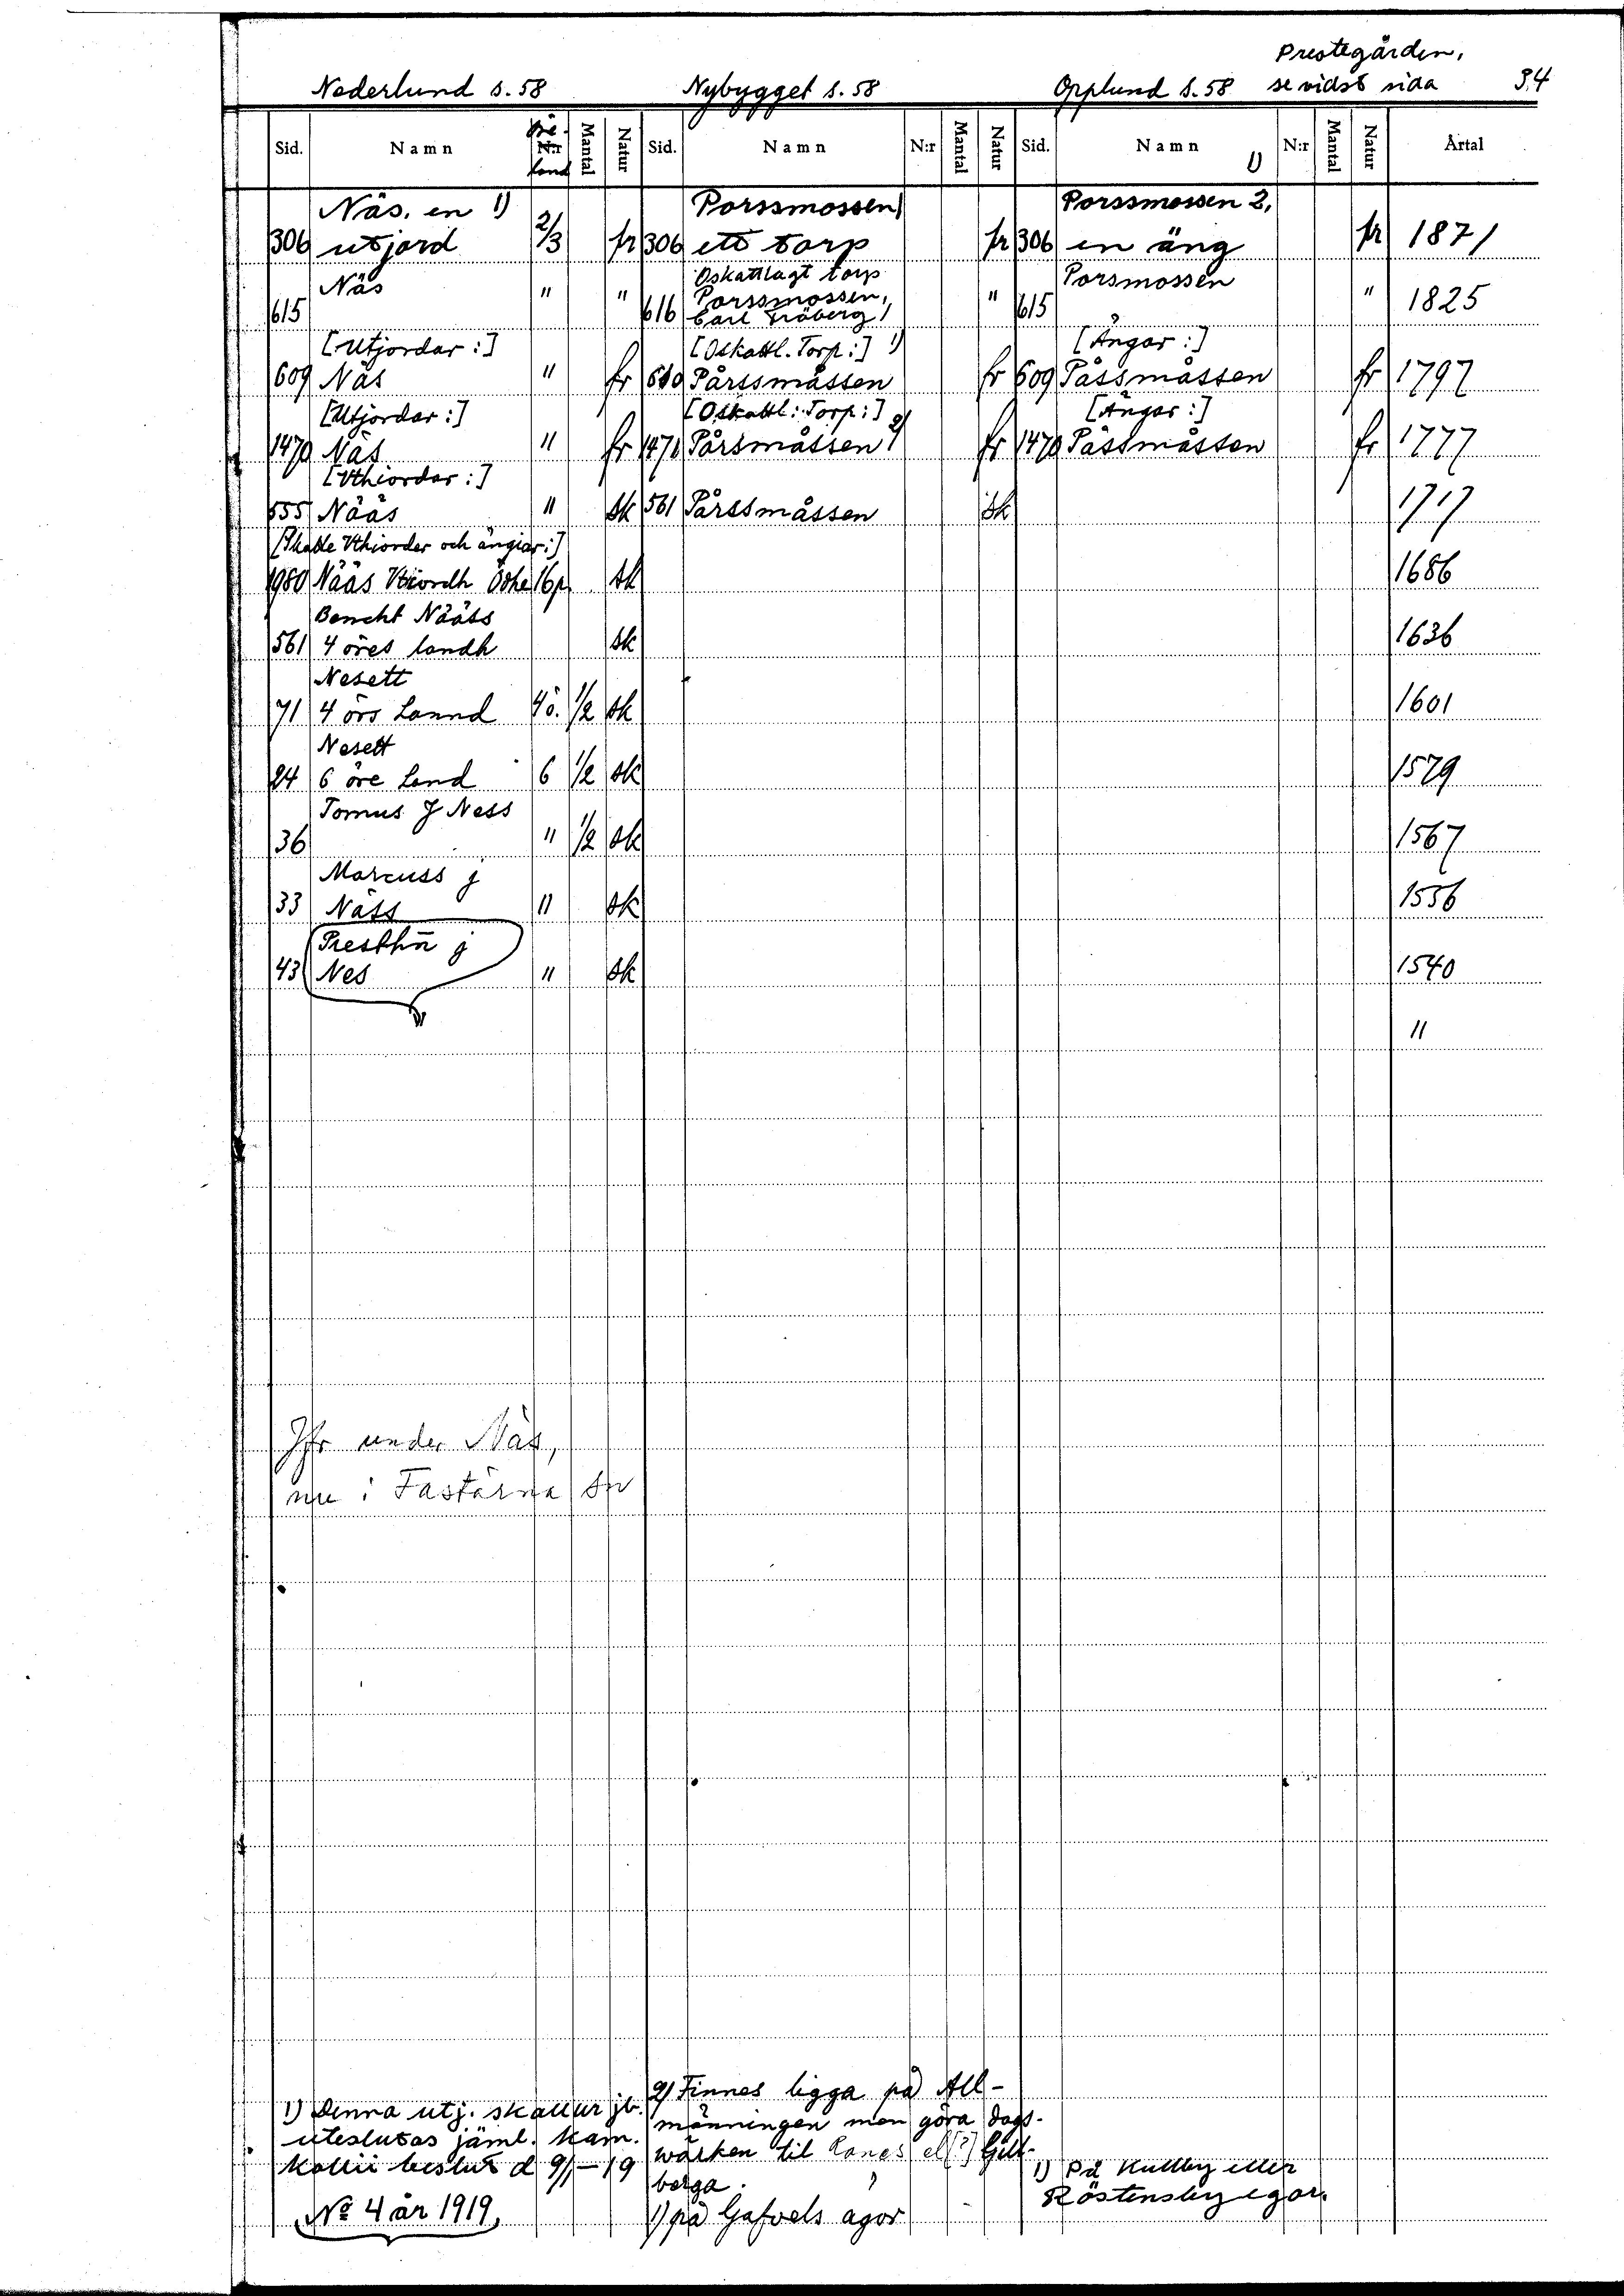 Prestegården,
Nederlund s. 58 Nybygget s. 58 Opplund s. 58 se vidst sida 34
Sid. Namn N:r land Mantal Natur Sid. Namn N:r Mantal Natur Sid. Namn 1) N:r Mantal Natur Årtal
Näs, en 1) Porssmossen Porssmossen 2,
306 utjord 2/3 fr 306 ett torp fr 306 en äng fr 1871
Näs Oskattlagt torp Porsmossen
615 " " 616 Porssmossen, " 615 " 1825
Carl Fröberg
[Utjordar:] [Oskattl. Torp:] 1) [Ängar:]
609 Näs " fr 610 Pårssmåssen fr 609 Påssmåssen fr 1797
[Utjordar:] [Oskattl: Torp:] [Ängar:]
1470 Näs " fr 1471 Pårsmåssen 2) fr 1470 Påssmåssen fr 1777
[Vthiordar:]
555 Nääs " sk 561 Pårssmåssen sk 1717
[Skatte Vthiorder och ängiar:]
1980 Nääs Vtiordh 16 p. sk 1686
Bencht Nääss
561 4 öres landh sk 1636
Nesett
71 4 örs Lannd 4 ö. 1/2 sk 1601
Nesett
24 6 öre Land 6 1/2 sk 1579
Tomus J Ness
36 " 1/2 sk 1567
Marcuss j
33 Näss " sk 1556
Presthn̄ j
43 Nes " sk 1540
"
Jfr under Näs,
nu i Fasterna sn
1) Denna utj. skall ur jb.
uteslutas jäml. Kam.
Kollii beslut d 9/1-19
No 4 år 1919
2) Finnes ligga på All-
männingen men göra dags-
wärken til Ranes el[?] Gill-
berga.
1) på Gafvels agor
1) På Kullby eller
Röstensby egor.